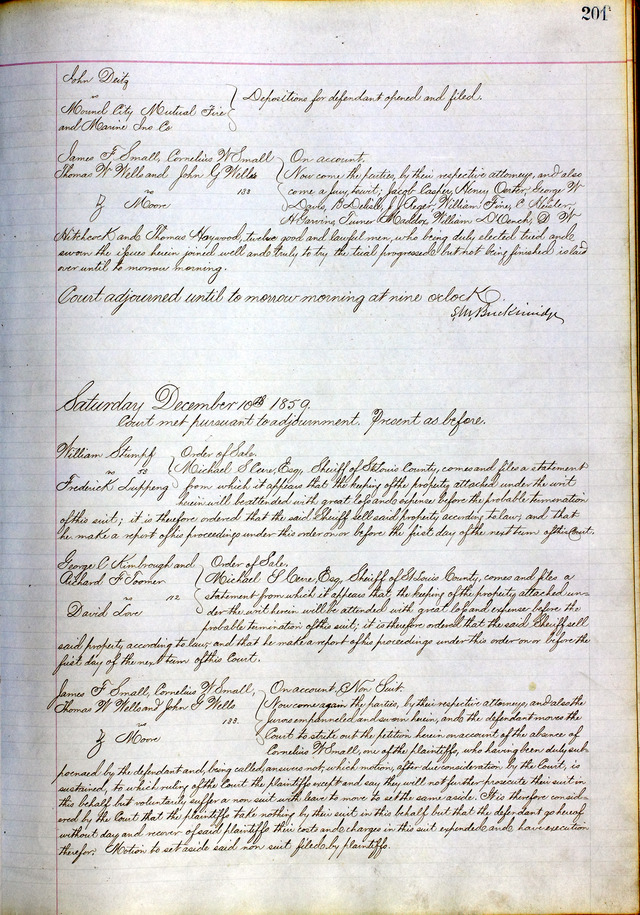 201
John Deitz
vs
Mound City Mutual Fire
and Marine Ins Co
Depositions for defendant opened and filed.
James F Small, Cornelius W Small
Thomas W Wells and John G Wells
vs 133
Moore
On account.
Now come the parties, by their respective attorneys, and also
come a jury, towit; Jacob Casper, Henry George W
Davis, B Ager, William Fine, C Kesler,
H Garvins, Turner Maddox, William D'Oench, D W
Hitchcock and Thomas Haywood, twelve good and lawful men, who being duly elected tried and
sworn the issues herein joined well and truly to try the trial progressed but not being finished is laid
over until to morrow morning.
Court adjourned until to morrow morning at nine oclock
S. M. Breckinridge
Saturday December 10th 1859.
Court met pursuant to adjournment. Present as before.
William Stumpf
vs 53
Frederick Luppeng
Order of Sale.
Michael S Cere, Esq, Sheriff of St Louis County, comes and files a statement
from which it appears that the keeping of the property attached under the writ
herein will be attended with great loss and expense before the probable termination
of this suit; it is therefore ordered that the said Sheriff sell said property according to law; and that
he make a report of his proceedings under this order on or before the first day of the next term of this Court.
George C Kimbrough and
Richard F Toomer
vs 172
David Love
Order of Sale.
Michael S Cere, Esq, Sheriff of St Louis County, comes and files a
statement from which it appears that the keeping of the property attached un-
der the writ herein will be attended with great loss and expense before the
probable termination of this suit; it is therefore ordered that the said Sheriff sell
said property according to law; and that he make a report of his proceedings under this order on or before the
first day of the next term of this Court.
James F Small, Cornelius W Small,
Thomas W Wells and John G Wells
vs 133
Moore
On account, Non Suit.
Now come again the parties, by their respective attorneys, and also the
jurors empanneled and sworn herein, and the defendant moves the
Court to strike out the petition herein on account of the absence of
Cornelius W Small, one of the plaintiffs, who having been duly sub-
poenaed by the defendant and, being called, answers not, which motion, after due consideration by the Court, is
sustained, to which ruling of the Court the plaintiffs except and say they will not further prosecute their suit in
this behalf but voluntarily suffer a non suit with leave to move to set the same aside. It is therefore consid-
ered by the Court that the plaintiffs take nothing by their suit in this behalf but that the defendant go hereof
without day and recover of said plaintiffs their costs and charges in this suit expended and have execution
therefor. Motion to set aside said non suit filed by plaintiffs.